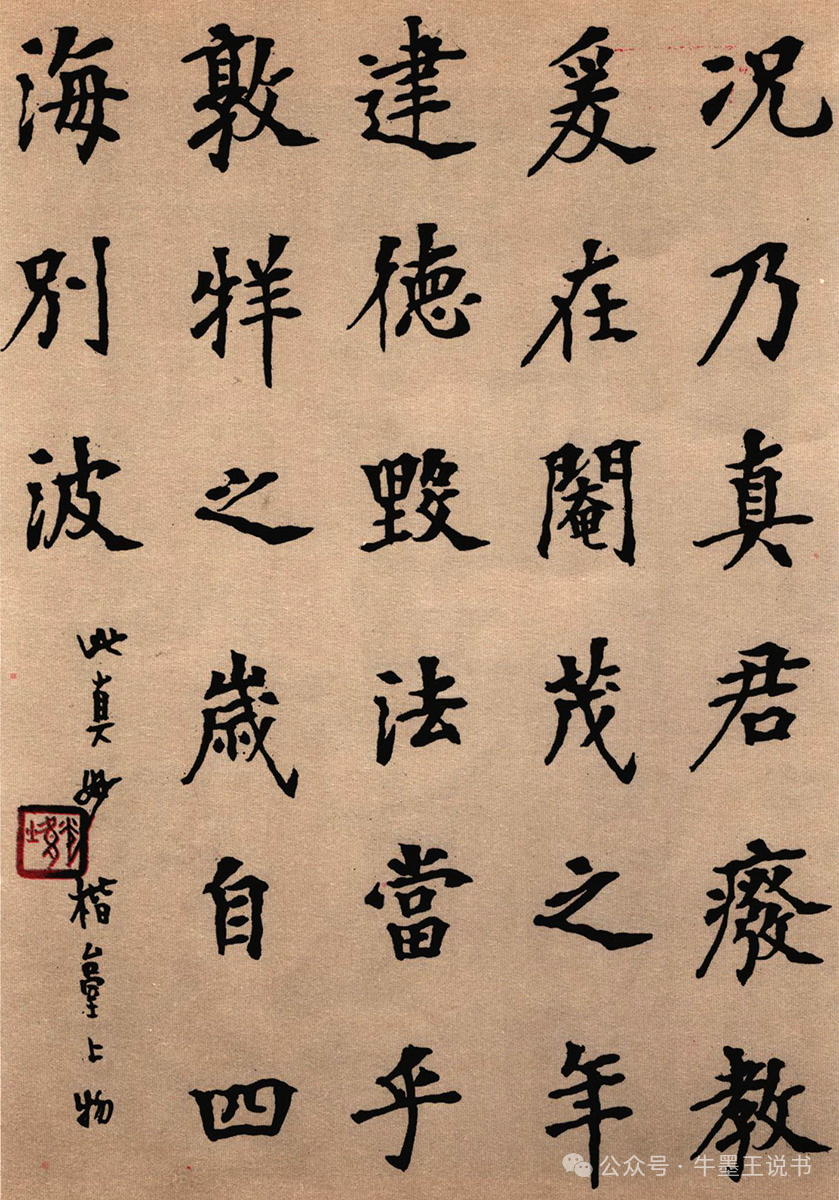 况乃真君癈教
爰在閹茂之年
建德毀法當乎
敦牂之歲自四
海別波
此真妙楷臺上物
公众号·牛墨王说书